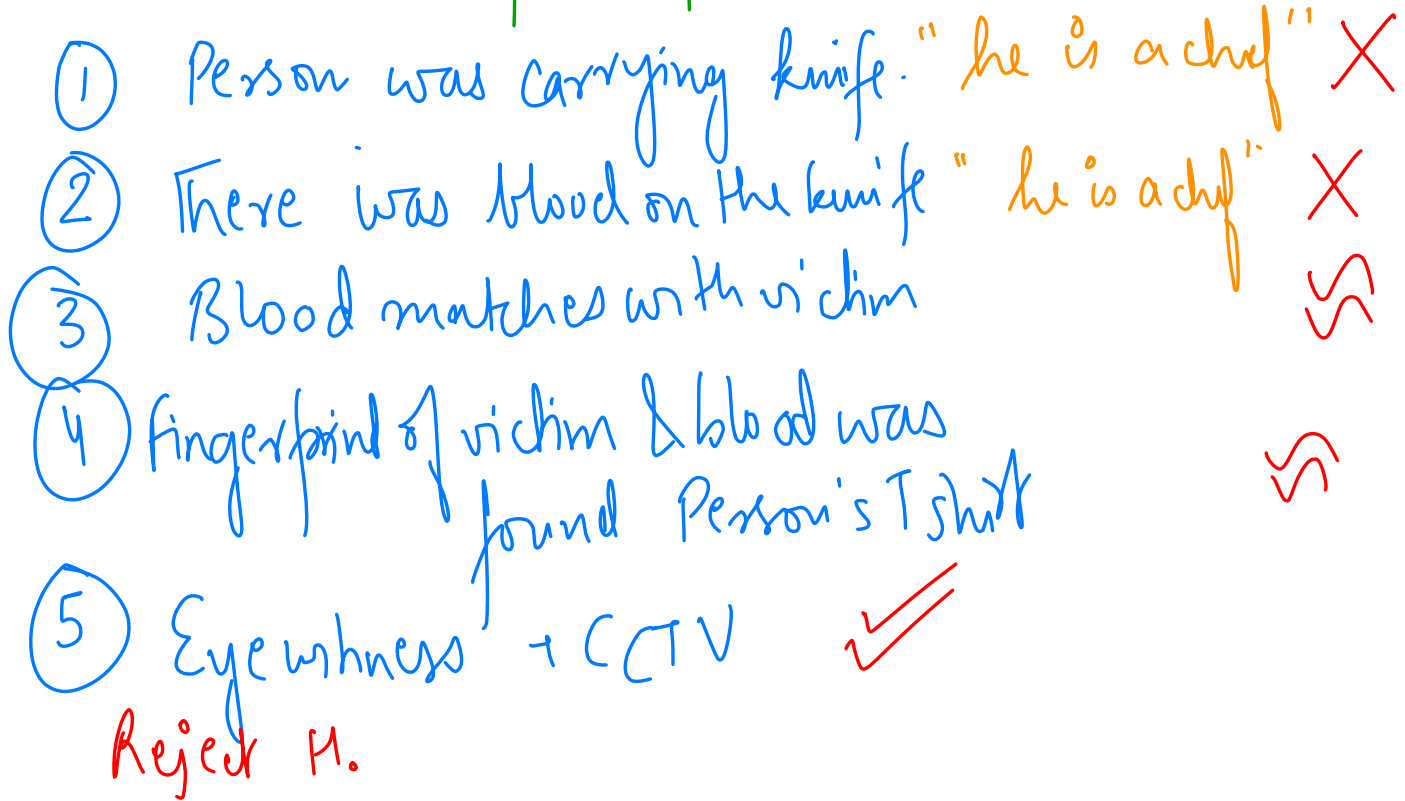 1 Person was carrying knife. "he is a chef" X
2 There was blood on the knife "he is a chef" X
3 Blood matches with victim
4 fingerprint of victim & blood was
found Person's T shirt
5 Eyewitness + CCTV
Reject H0